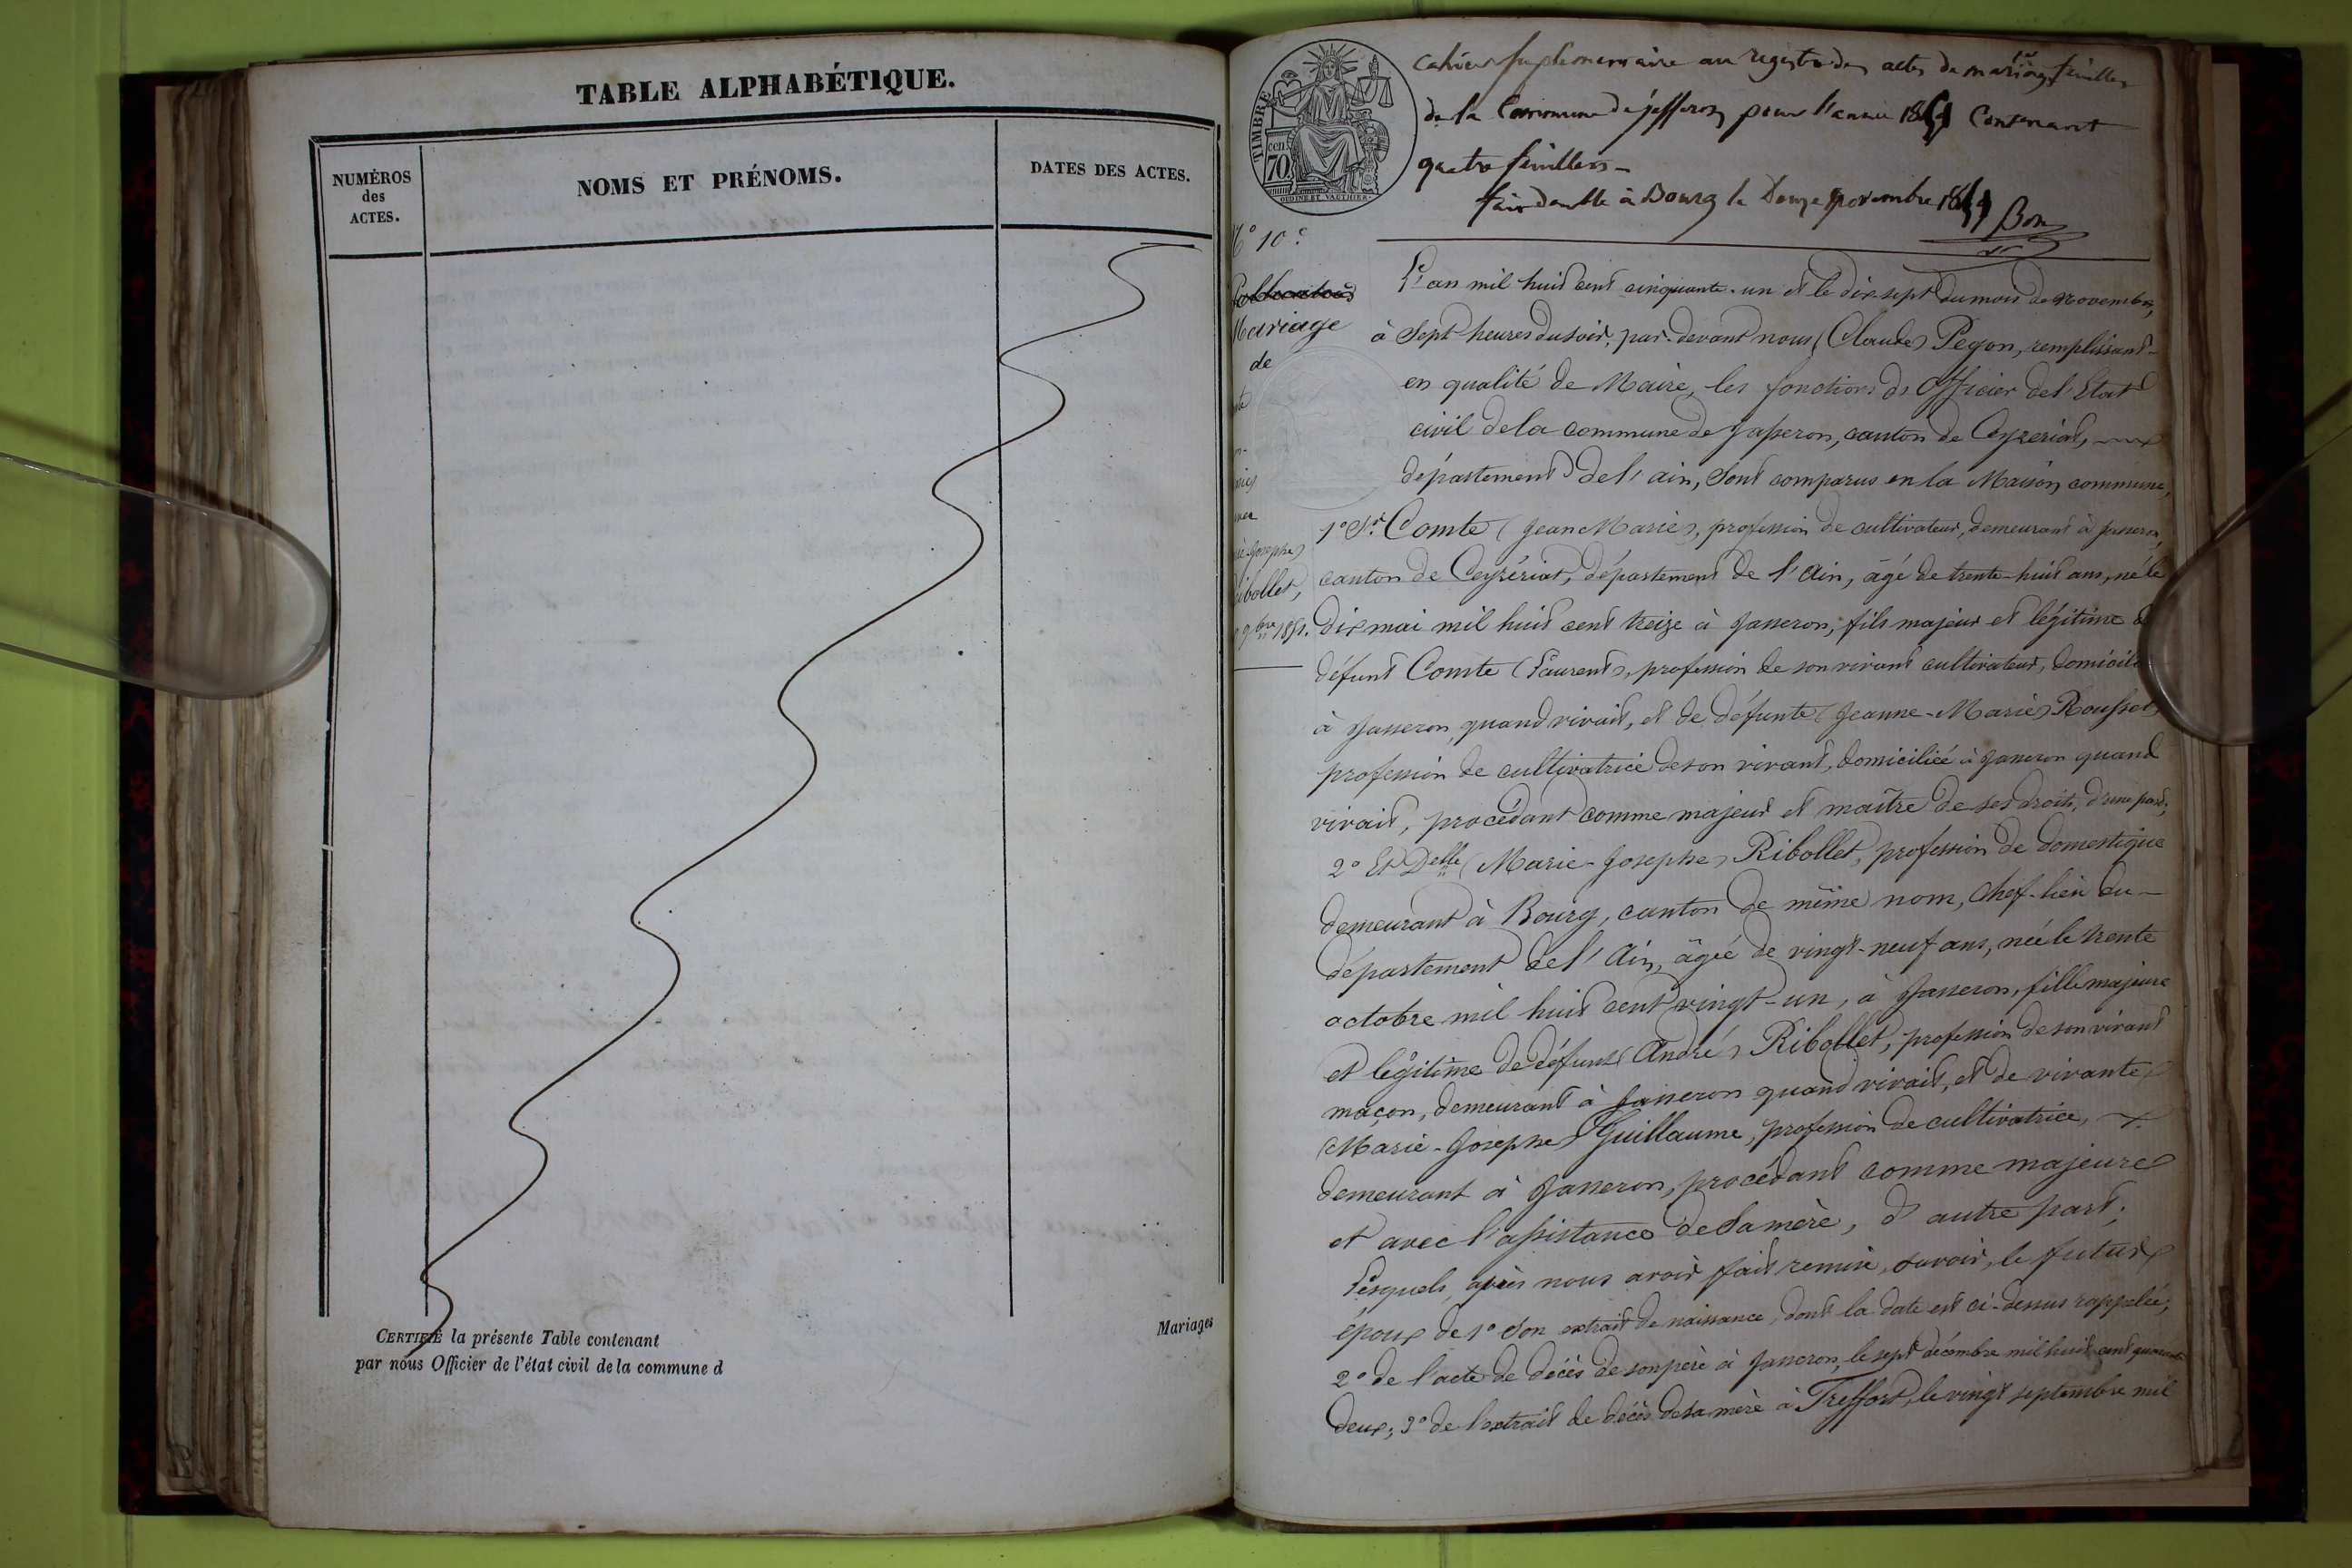 TABLE ALPHABÉTIQUE.
NUMÉROS
des
ACTES.
NOMS ET PRÉNOMS.
DATES DES ACTES.
CERTIFIÉ la présente Table contenant
par nous Officier de l'état civil de la commune d
Mariages
TIMBRE
70 cen.
OUDINE ET VAUTHIER.
cahier suplementaire au registre des actes de mariage
de la Commune de jasseron pour l'année 1851 Contenant
quatre feuillets
fait double à Bourg le Douze novembre 1851
Bon
N° 10.
Publications
Mariage
de
-Josephe)
Ribollet,
9bre 1851.
L'an mil huit cent cinquante-un et le dix sept du mois de novembre,
à Sept heures du soir, par-devant nous (Claude) Pegon, remplissant
en qualité de Maire, les fonctions d'Officier de l'Etat
civil de la commune de Jasseron, canton de Ceyzeriat,
département de l'ain, Sont comparus en la Maison commune,
1° Sr. Comte (Jean Marie), profession de cultivateur, demeurant à Jasseron,
canton de Ceyzériat, département de l'Ain, âgé de trente-huit ans, né le
dix mai mil huit cent treize à Jasseron, fils majeur et légitime de
défunt Comte (Laurent), profession de son vivant cultivateur, domicilié
à Jasseron, quand vivait, et de défunte (Jeanne-Marie) Rousset,
profession de cultivatrice de son vivant, domiciliée à Jasseron quand
vivait, procédant comme majeur et maître de ses droits, d'une part;
2° Et Delle (Marie-Josephe) Ribollet, profession de domestique
demeurant à Bourg, canton de même nom, Chef-lieu du
département de l'Ain, âgée de vingt-neuf ans, née le trente
octobre mil huit cent vingt-un, à Jasseron, fille majeure
et légitime de défunt (André) Ribollet, profession de son vivant
maçon, demeurant à Jasseron quand vivait, et de vivante
(Marie-Josephe) Guillaume, profession de cultivatrice,
demeurant à Jasseron, procédant comme majeure
et avec l'assistance de Sa mère, d'autre part;
Lesquels, après nous avoir fait remise, savoir, le futur
époux de 1° Son extrait de naissance, dont la date est ci-dessus rappelée;
2° de l'acte de décès de son père à Jasseron, le sept décembre mil huit cent quarante
deux; 3° de l'extrait de décès de sa mère à Treffort, le vingt septembre mil